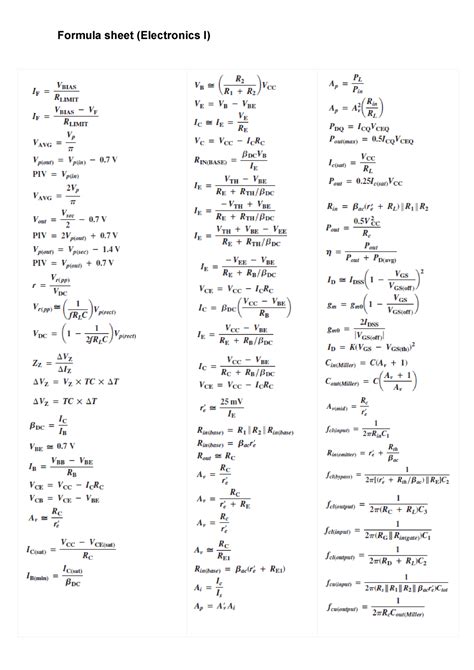 Formula sheet (Electronics I)
I_F = V_BIAS / R_LIMIT
I_F = (V_BIAS − V_F) / R_LIMIT
V_AVG = V_p / π
V_p(out) = V_p(in) − 0.7 V
PIV = V_p(in)
V_AVG = 2V_p / π
V_out = V_sec / 2 − 0.7 V
PIV = 2V_p(out) + 0.7 V
V_p(out) = V_p(sec) − 1.4 V
PIV = V_p(out) + 0.7 V
r = V_r(pp) / V_DC
V_r(pp) ≅ (1 / fR_LC) V_p(rect)
V_DC = (1 − 1 / 2fR_LC) V_p(rect)
Z_Z = ΔV_Z / ΔI_Z
ΔV_Z = V_Z × TC × ΔT
ΔV_Z = TC × ΔT
β_DC = I_C / I_B
V_BE ≅ 0.7 V
I_B = (V_BB − V_BE) / R_B
V_CE = V_CC − I_CR_C
V_CB = V_CE − V_BE
A_v ≅ R_C / r'_e
I_C(sat) = (V_CC − V_CE(sat)) / R_C
I_B(min) = I_C(sat) / β_DC
V_B ≅ (R_2 / (R_1 + R_2)) V_CC
V_E = V_B − V_BE
I_C ≅ I_E = V_E / R_E
V_C = V_CC − I_CR_C
R_IN(BASE) = β_DCV_B / I_E
I_E = (V_TH − V_BE) / (R_E + R_TH/β_DC)
I_E = (−V_TH + V_BE) / (R_E + R_TH/β_DC)
I_E = (V_TH + V_BE − V_EE) / (R_E + R_TH/β_DC)
I_E = (−V_EE − V_BE) / (R_E + R_B/β_DC)
V_CE = V_CC − I_CR_C
I_C = β_DC((V_CC − V_BE) / R_B)
I_E = (V_CC − V_BE) / (R_E + R_B/β_DC)
I_C = (V_CC − V_BE) / (R_C + R_B/β_DC)
V_CE = V_CC − I_CR_C
r'_e ≅ 25 mV / I_E
R_in(base) = R_1 || R_2 || R_in(base)
R_in(base) = β_acr'_e
R_out ≅ R_C
A_v = R_C / r'_e
A_v = R_C / (r'_e + R_E)
A_v = R_c / r'_e
A_v ≅ R_C / R_E1
R_in(base) = β_ac(r'_e + R_E1)
A_i = I_c / I_s
A_p = A'_v A_i
A_p = P_L / P_in
A_p = A_v^2 (R_in / R_L)
P_DQ = I_CQV_CEQ
P_out(max) = 0.5I_CQV_CEQ
I_c(sat) = V_CC / R_L
P_out = 0.25I_c(sat)V_CC
R_in = β_ac(r'_e + R_L) || R_1 || R_2
P_out = 0.5V_CC^2 / R_c
η = P_out / (P_out + P_D(avg))
I_D ≅ I_DSS(1 − V_GS / V_GS(off))^2
g_m = g_m0(1 − V_GS / V_GS(off))
g_m0 = 2I_DSS / |V_GS(off)|
I_D = K(V_GS − V_GS(th))^2
C_in(Miller) = C(A_v + 1)
C_out(Miller) = C((A_v + 1) / A_v)
A_v(mid) = R_c / r'_e
f_cl(input) = 1 / 2πR_inC_1
R_in(emitter) = r'_e + R_th / β_ac
f_cl(bypass) = 1 / 2π[(r'_e + R_th/β_ac) || R_E]C_2
f_cl(output) = 1 / 2π(R_C + R_L)C_3
f_cl(input) = 1 / 2π(R_G || R_in(gate))C_1
f_cl(output) = 1 / 2π(R_D + R_L)C_2
f_cu(input) = 1 / 2π(R_s || R_1 || R_2 || β_acr'_e)C_tot
f_cu(output) = 1 / 2πR_cC_out(Miller)